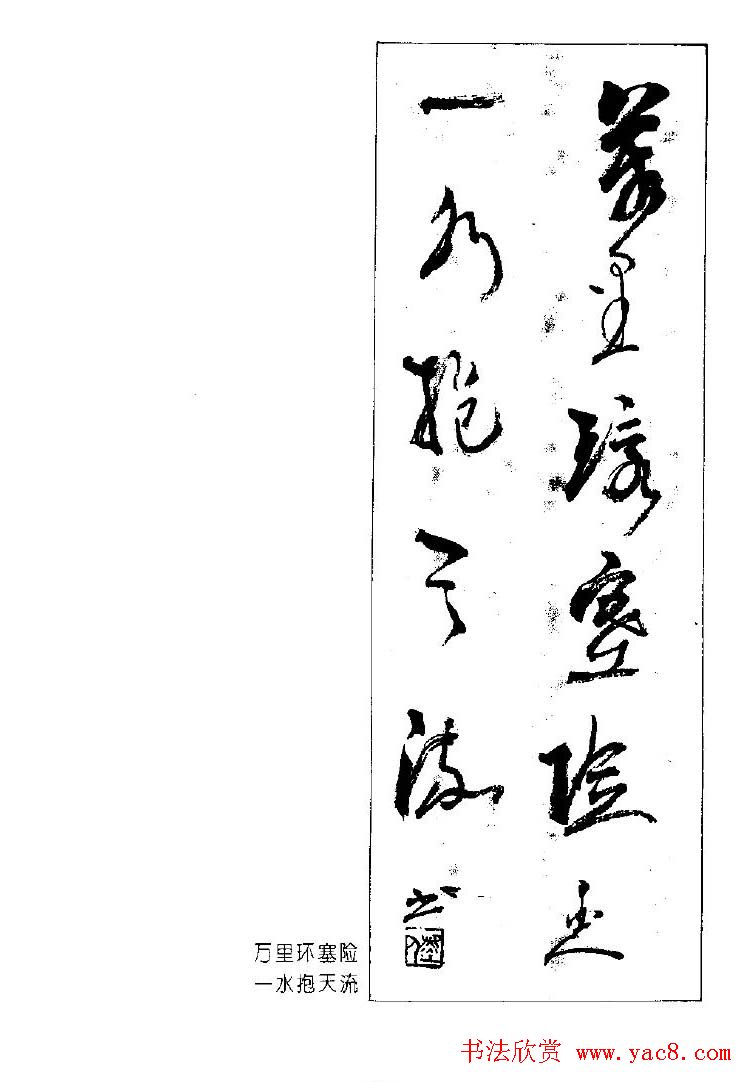 萬里環塞險
一水抱天流
书
万里环塞险
一水抱天流
书法欣赏 www.yac8.com